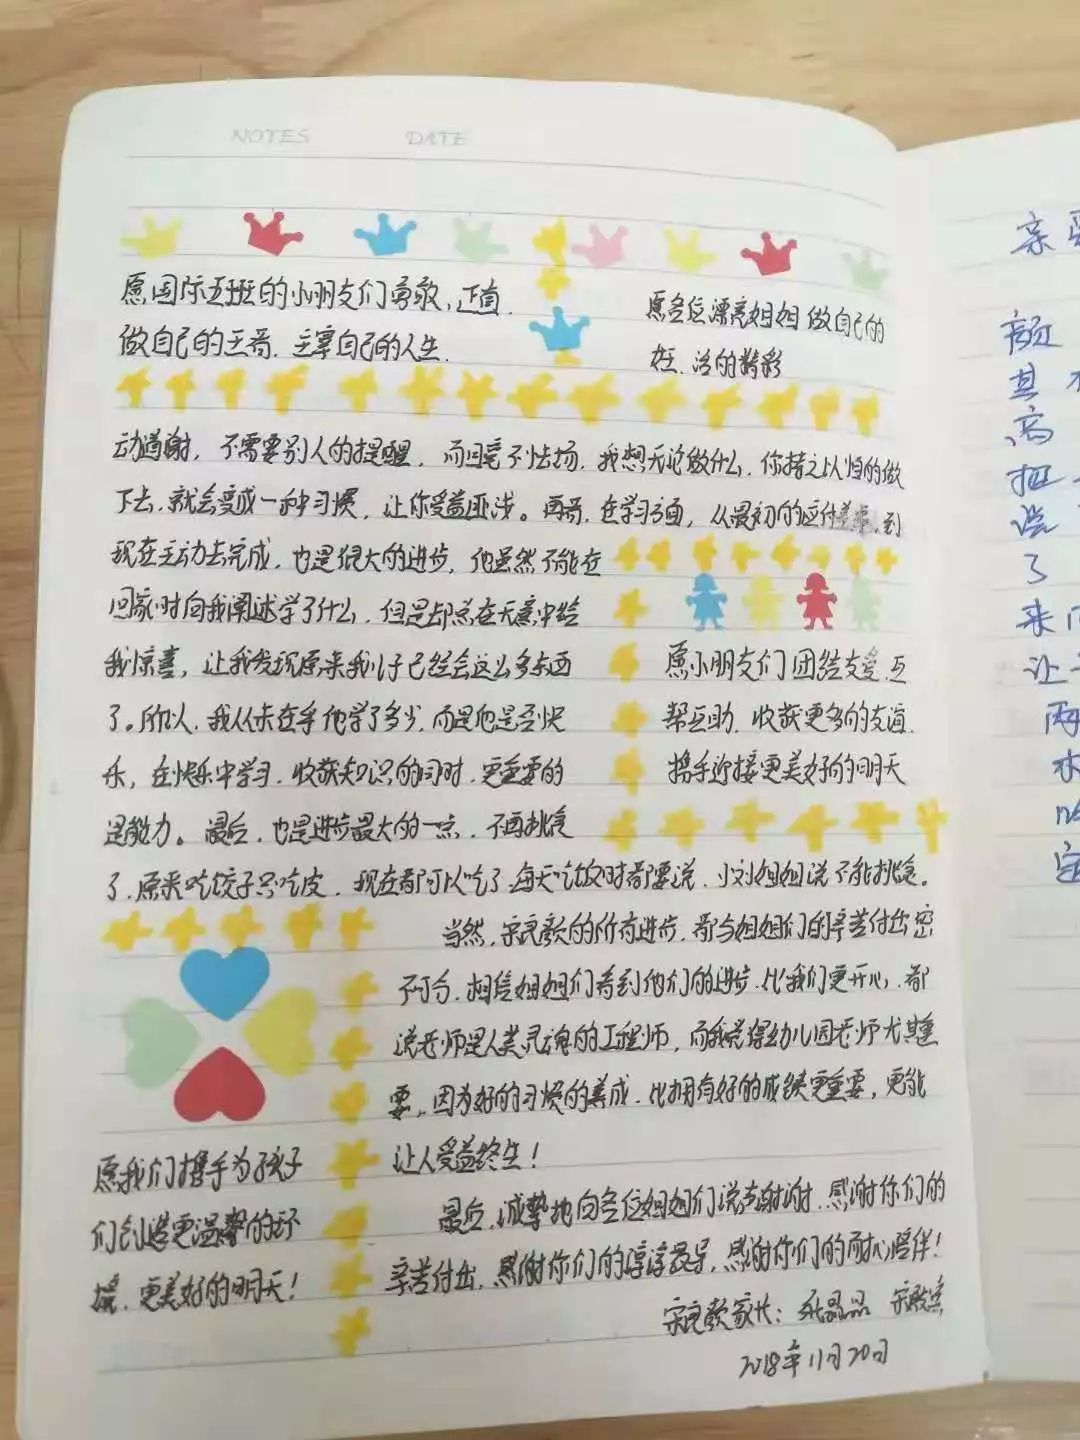 NOTES DATE
愿国际五班的小朋友们勇敢、正直、
做自己的王者、主宰自己的人生.
愿各位漂亮姐姐做自己的
女王、活的精彩
动道谢，不需要别人的提醒，而且毫不怯场，我想无论做什么，你持之以恒的做
下去，就会变成一种习惯，让你受益匪浅。再者，在学习方面，从最初的应付差事，到
现在主动去完成，也是很大的进步，他虽然不能在
回家时向我阐述学了什么，但是却总在无意中给
我惊喜，让我发现原来我儿子已经会这么多东西
了。所以，我从未在乎他学了多少，而是他是否快
乐，在快乐中学习，收获知识的同时，更重要的
是能力。最后，也是进步最大的一点，不再挑食
愿小朋友们团结友爱、互
帮互助、收获更多的友谊，
携手迎接更美好的明天
了，原来吃饺子只吃皮，现在都可以吃了，每天吃饭时都要说，小刘姐姐说不能挑食。
当然，宋良歆的所有进步，都与姐姐们的辛苦付出密
不可分，相信姐姐们看到他们的进步，比我们更开心，都
说老师是人类灵魂的工程师，而我觉得幼儿园老师尤其重
要，因为好的习惯的养成，比拥有好的成绩更重要，更能
让人受益终生！
愿我们携手为孩子
们创造更温馨的环
境，更美好的明天！
最后，诚挚地向各位姐姐们说声谢谢，感谢你们的
辛苦付出，感谢你们的谆谆教导，感谢你们的耐心陪伴！
宋良歆家长：
2018年11月20日
亲
颜
其
高
把
说
了
来
让
两